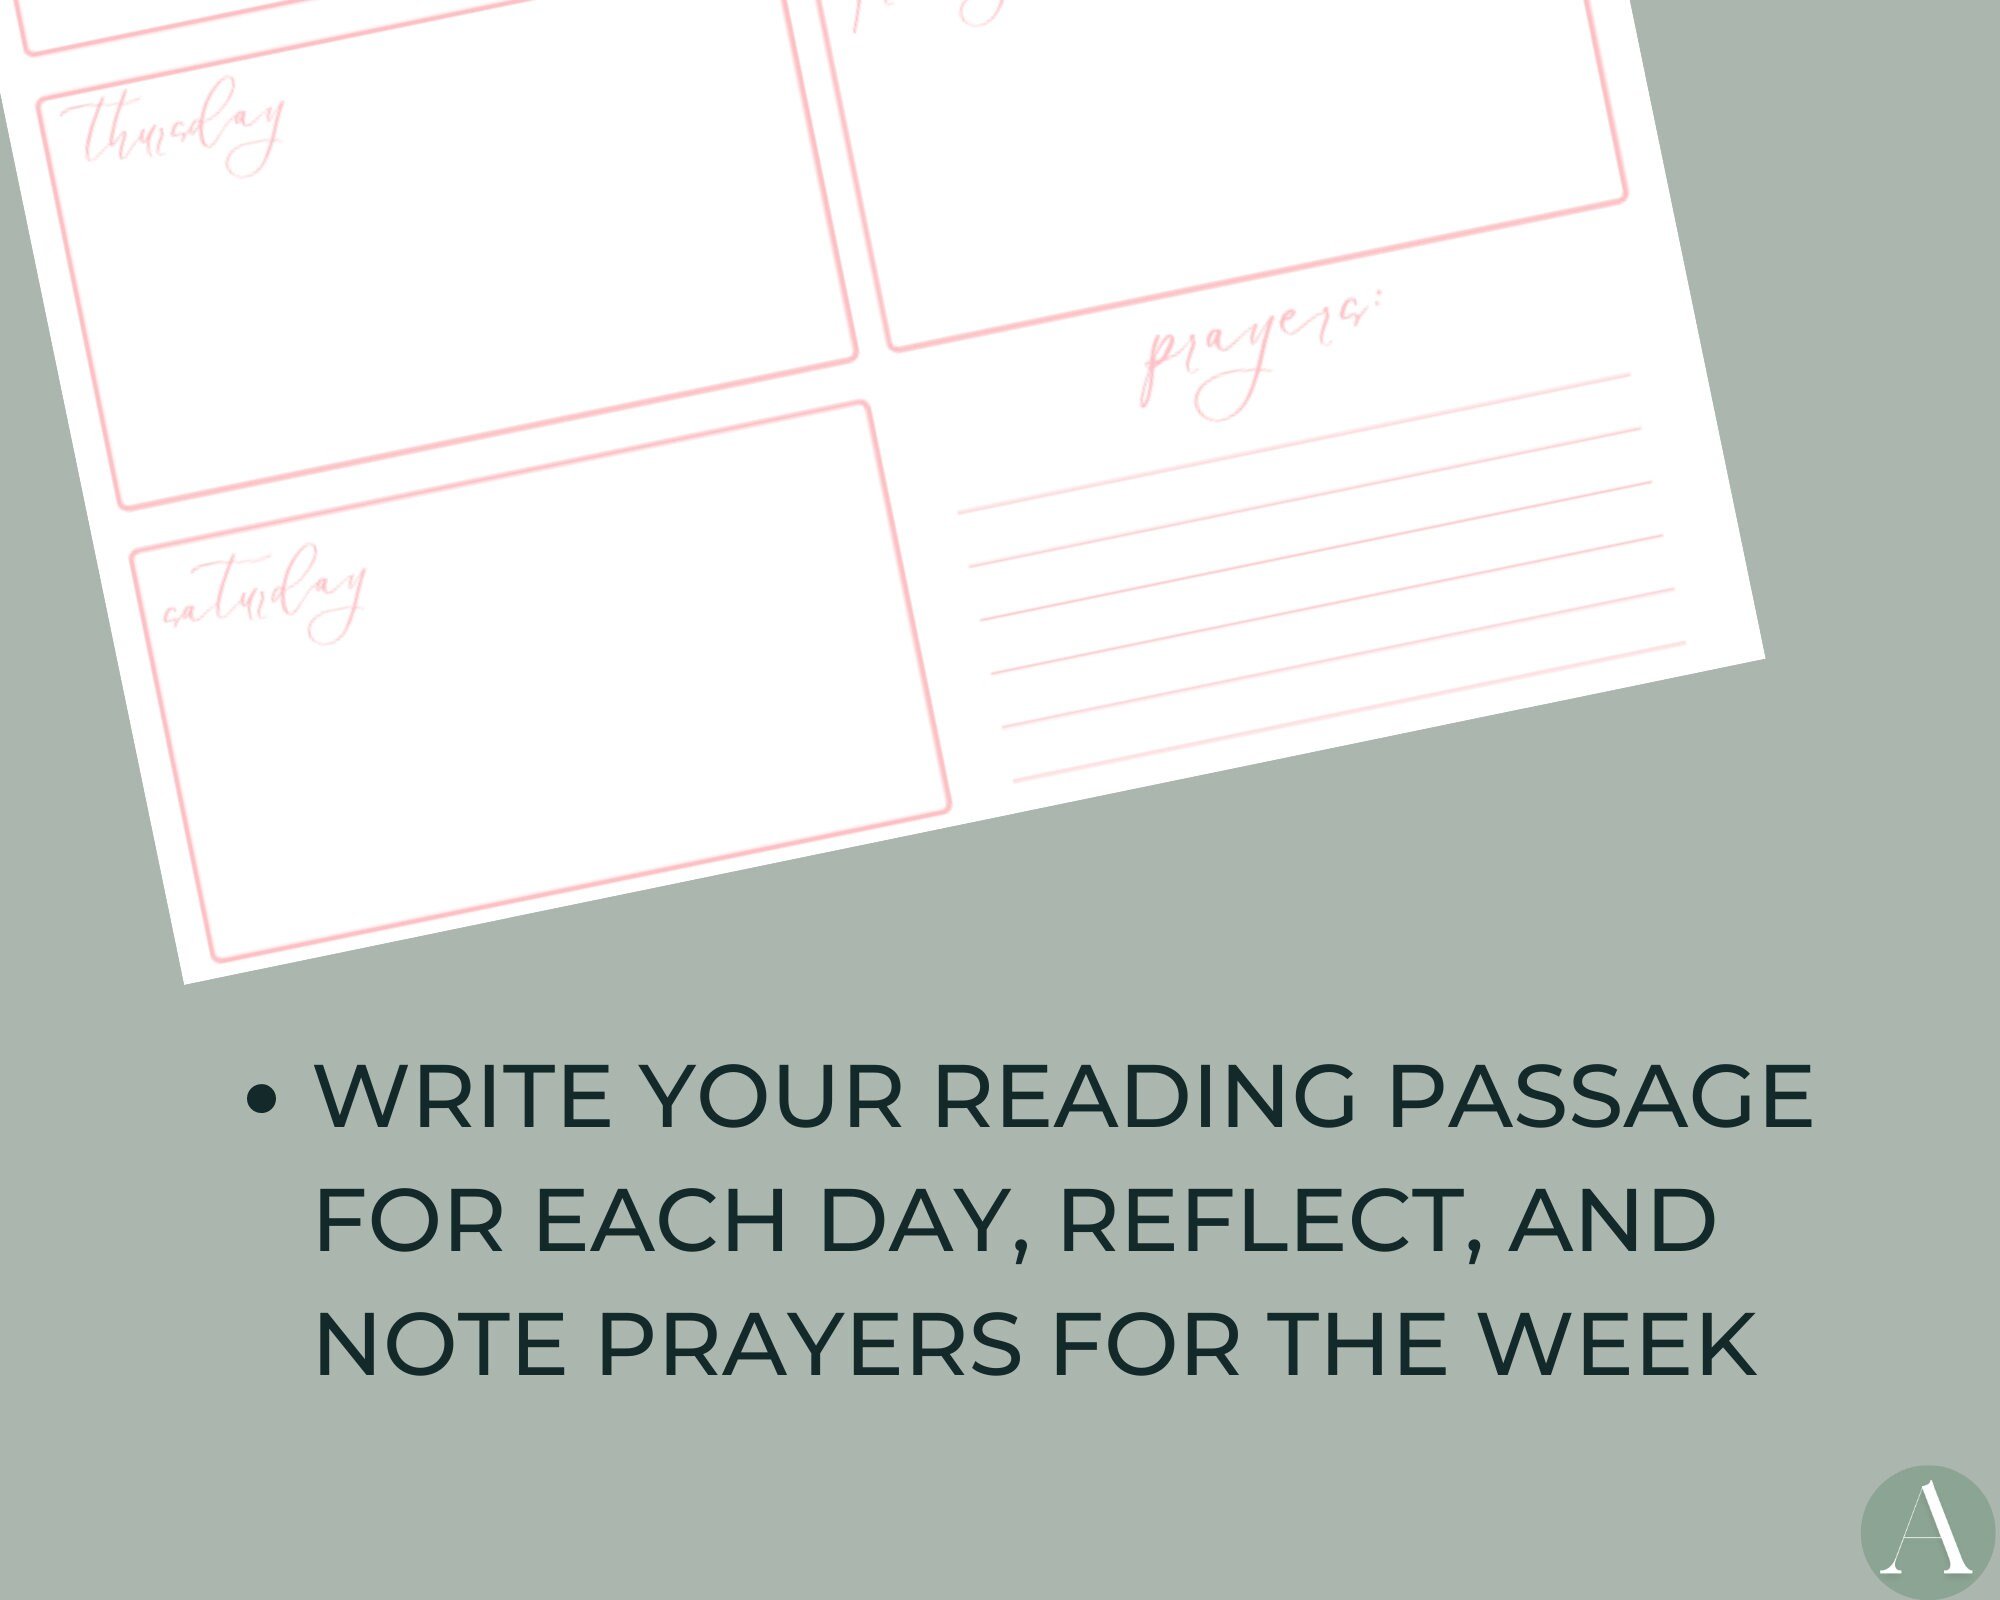 thursday
prayers:
saturday
• WRITE YOUR READING PASSAGE
FOR EACH DAY, REFLECT, AND
NOTE PRAYERS FOR THE WEEK
A